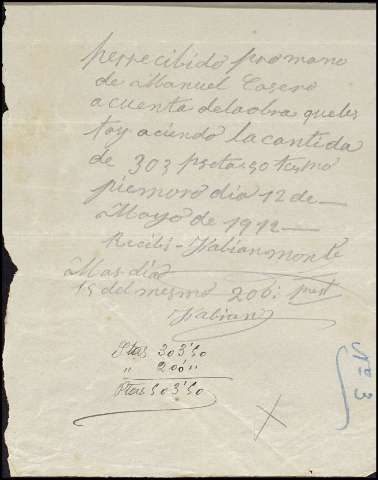 perrecibido promano
de Manuel Casero
a cuenta delaobra queles
toy aciendo la cantida
de 303 pseta 50 tusmo
piemoro dia 12 de
Mayo de 1912
Recibi - Fabian monte
Mas dia
15 del mesmo 200
Fabian
Ptas 303'50
" 200 "
Ptas 503'50
Nº 3